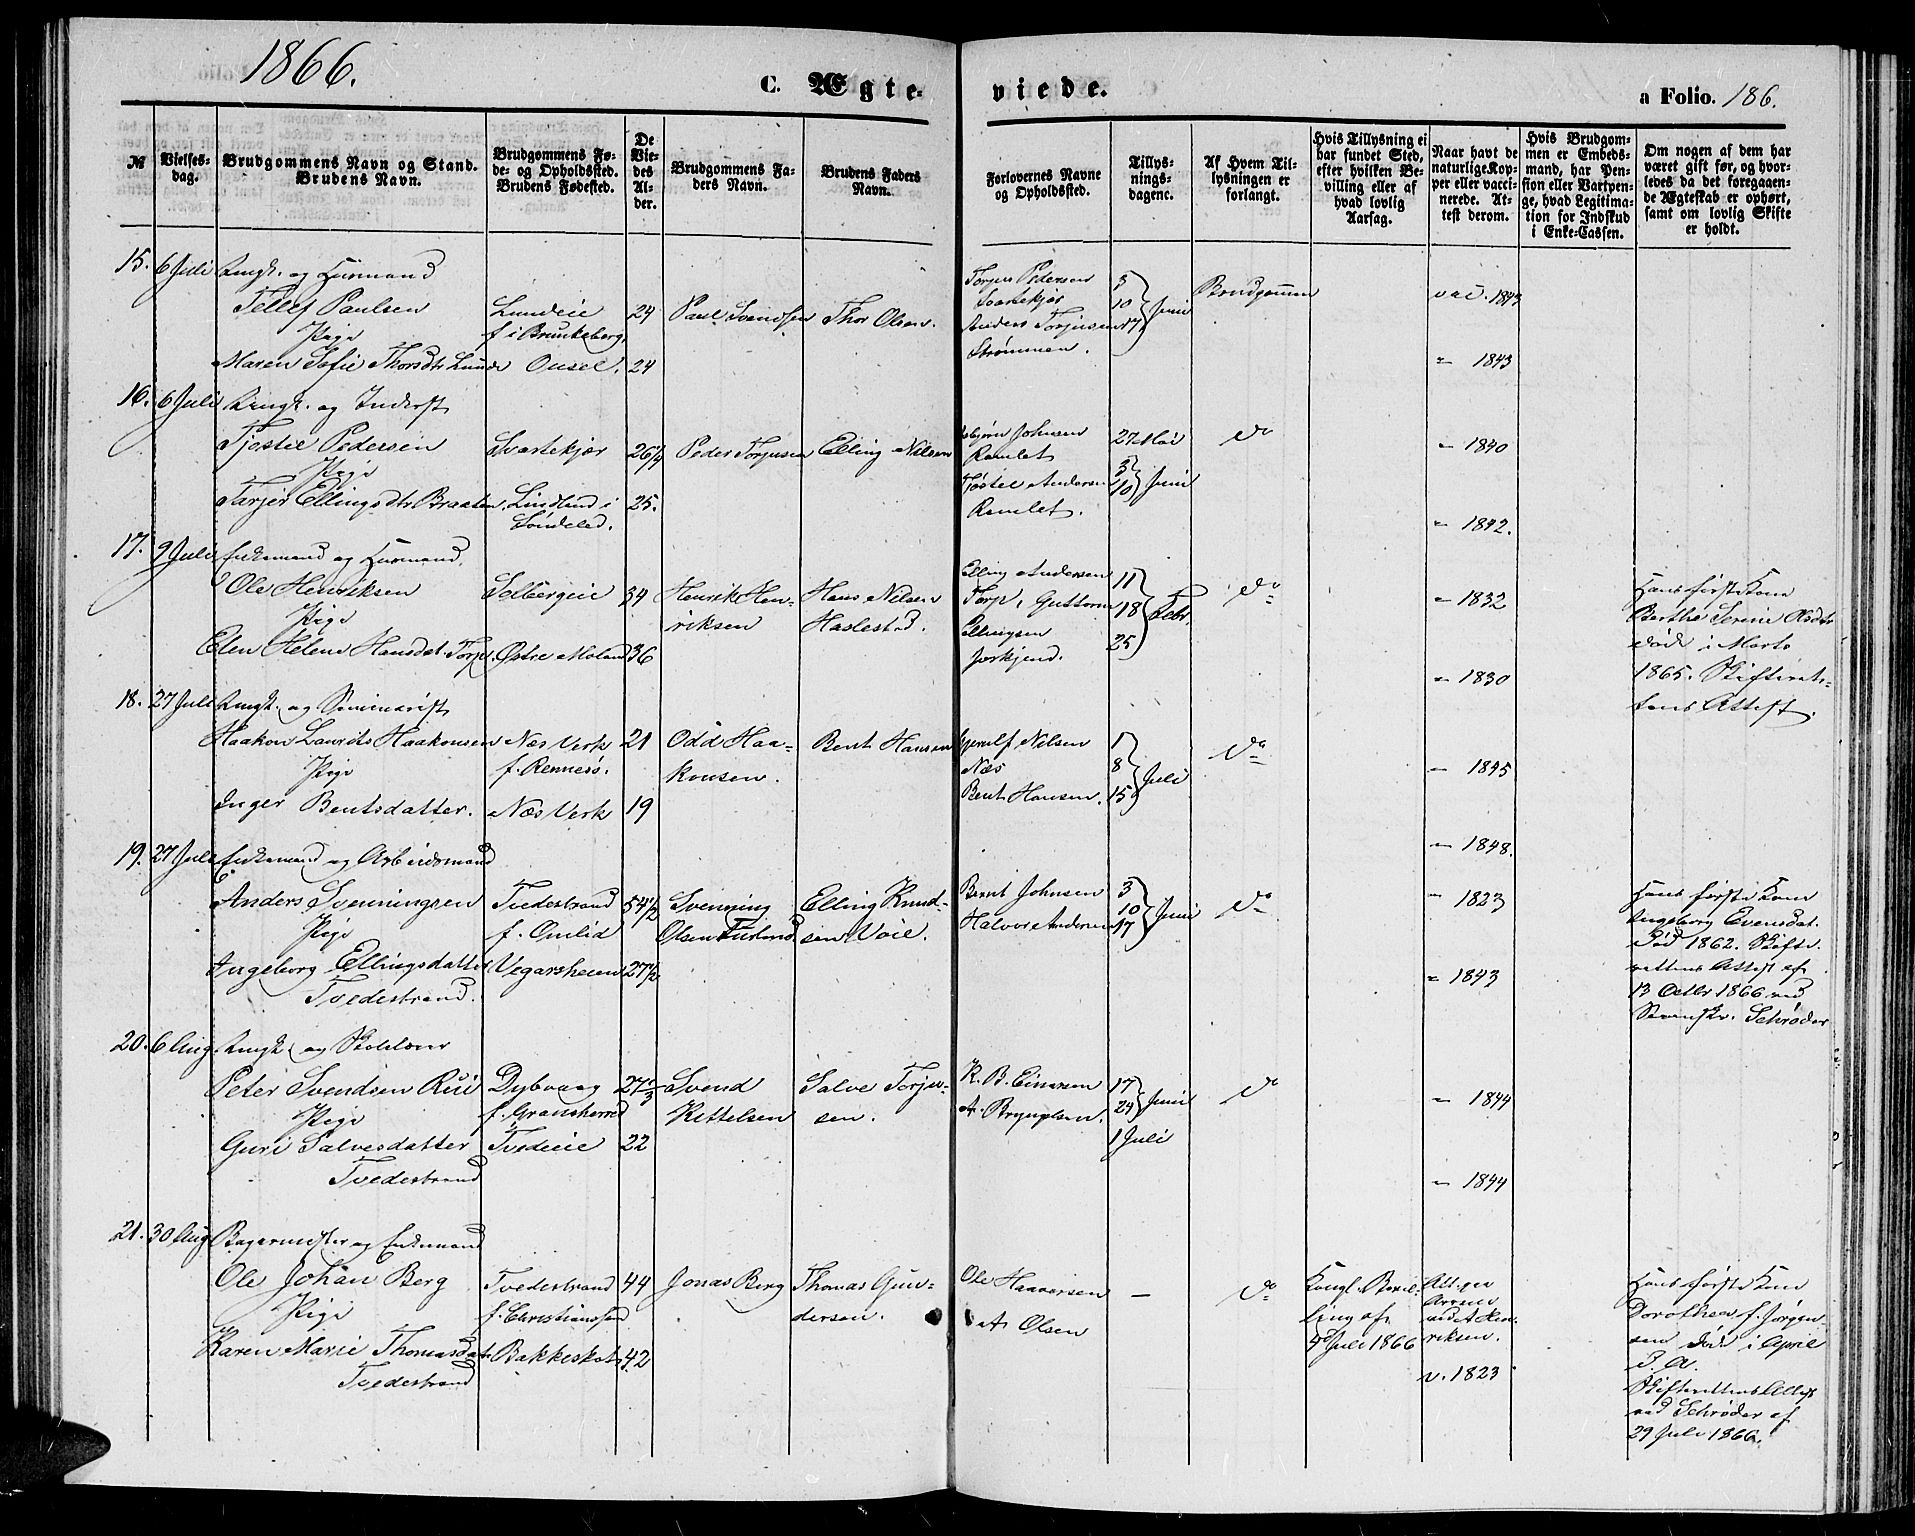 1866.
C. Ægte-
viede.
a Folio. 186.
№
Vielses-
dag.
Brudgommens Navn og Stand.
Brudens Navn.
Brudgommens Fø-
de- og Opholdssted.
Brudens Fødested.
De
Vie-
des
Al-
der.
Brudgommens Fa-
ders Navn.
Brudens Faders
Navn.
Forlovernes Navne
og Opholdssted.
Tillys-
nings-
dagene.
Af Hvem Til-
lysningen er
forlangt.
Hvis Tillysning ei
har fundet Sted,
efter hvilken Be-
villing eller af
hvad lovlig
Aarsag.
Naar havt de
naturlige Kop-
per eller vacci-
nerede. At-
test derom.
Hvis Brudgom-
men er Embeds-
mand, har Pen-
sion eller Vartpen-
ge, hvad Legitima-
tion for Indskud
i Enke-Cassen.
Om nogen af dem har
været gift før, og hvor-
ledes da det foregaaen-
de Ægteskab er ophørt,
samt om lovlig Skifte
er holdt.
15. 6 Juli Ungk. og Huusmand
Tellef Paulsen
Pige
Maren Sofie Thorsdtr Lunde
Lundeie
f. i Brunkeberg.
Ousel.
24
24
Paul Svendsen
Thor Olsen.
Torjus Pedersen
Svartekjær
Anders Torjusen
Strømmen.
3
10
17
Juni
Brudgommen
vac. 1843
" 1843
16. 6 Juli Ungk. og Inderst
Tjostel Pedersen
Pige
Tarjer Ellingsdtr Braaten
Svartekjær
Lindland i
Søndeled.
26 1/4
25.
Peder Torjusen
Elling Nilsen
Johnsen
Ramlet
Tjøstel Andersen
Ramlet.
27 Mai
3
10
Juni
Do
" 1840
" 1842.
17. 9 Juli Enkemand og Huusmand.
Ole Henriksen
Pige
Elen Helene Hansdat. Torp.
Solbergeie
Østre Moland
34
36
Henrik Hen-
riksen
Hans Nilsen
Haslestad.
Elling Andersen
Torp, Guttorm
Ellingsen
11
18
25
Febr
Do
" 1832
" 1830
Hans første Kone
Berthe Serine Olsdtr
død i Marts
1865. Skifteret-
tens Attest.
18. 27 Juli Ungk. og Seminarist
Haakon Laurits Haakonsen
Pige
Inger Bentsdatter.
Næs Verk
f. Rennesø.
Næs Verk
21
19
Odd Haa-
konsen.
Bent Hansen
Nilsen
Næs
Bent Hansen.
1
8
15
Juli
Do
" 1845
" 1848.
19. 27 Juli Enkemand og Arbeidsmand
Anders Svenningsen
Pige
Ingeborg Ellingsdatter
Tvedestrand.
Tvedestrand
f. Omlid
Vegarsheien
54 1/2
27 1/2
Svenning
Olsen
Elling Knud-
sen Voie.
Bernt Johnsen
Halvor Andersen
3
10
17
Juni
Do
" 1823
" 1843
Hans første Kone
Ingeborg Evensdat.
død 1862. Skifte-
rettens Attest af
13 Octbr 1866 ved
Schrøder
20. 6 Aug. Ungk. og Skolelærer
Peter Svendsen Rui
Pige
Guri Salvesdatter
Tvedestrand
Dybvaag
f. Gransherred
Tvedeeie
27 2/3
22
Svend
Kettelsen
Salve Torju-
sen.
K. B. Einersen
A. Brynulsen.
17
24
Juni
1 Juli
Do
" 1844
" 1844
21. 30 Aug Bagermester og Enkemand
Ole Johan Berg
Pige
Karen Marie Thomasdat.
Tvedestrand
Tvedestrand
f. Christianssand
Bakkeskot
44
42
Jonas Berg
Thomas Gun-
dersen.
Ole Haavorsen
A Olsen
—
Do
Kongl. Bevil-
ling af
4 Juli 1866
Att. pr
ved A Hen-
riksen.
v. 1823
Hans første Kone
Dorothea f. Jørgen-
sen død i April
d. A.
Skifterettens Attest
ved Schrøder af
29 Juli 1866.